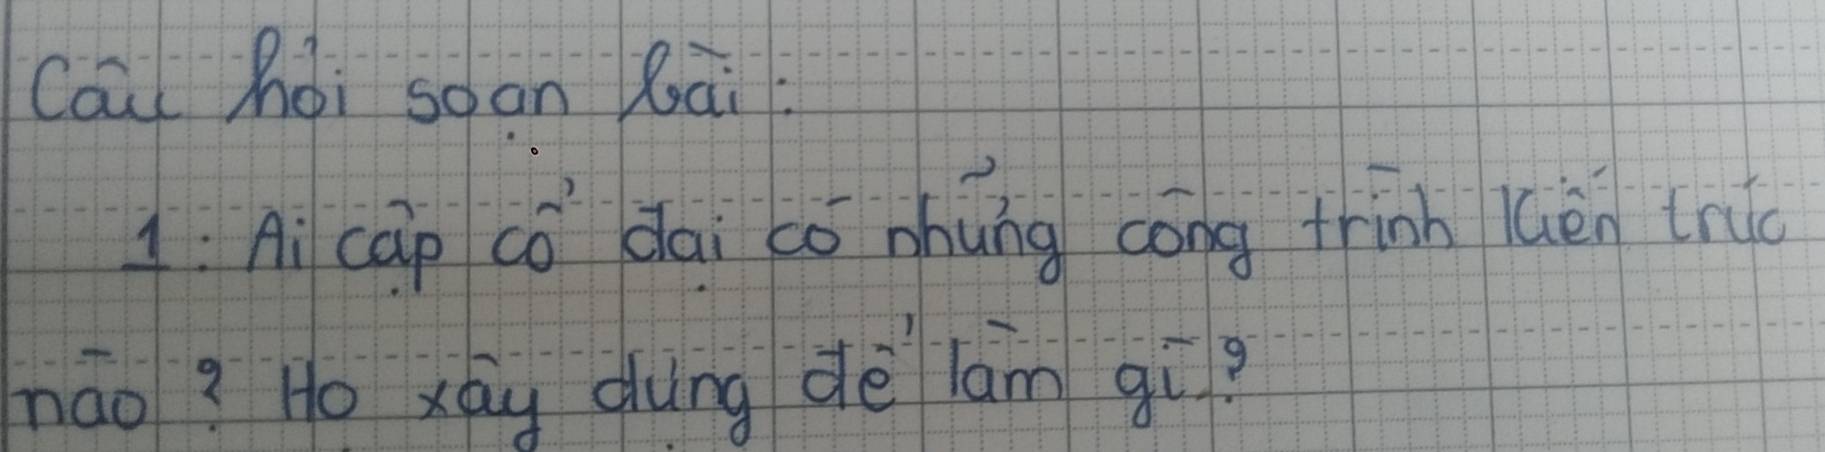 Câu hỏi soạn bài:
1: Ai cập cổ đại có những công trình kiến trúc
nào? Họ xây dựng để làm gì?